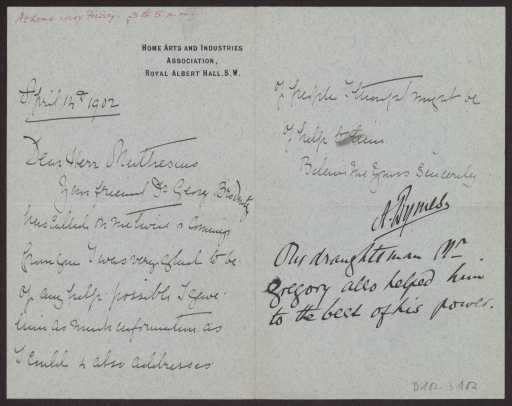 At home every Friday. 3 to 5 p.m.
HOME ARTS AND INDUSTRIES
ASSOCIATION,
ROYAL ALBERT HALL. S.W.
April 12th 1902
Dear Herr Muthesius
Your friend Dr Georg
has called on me twice & coming
from you I was very glad to be
of any help possible I gave
him as much information as
I could & also addresses
of people I thought might be
of help to him
Believe me Yours Sincerely
Our draughtsman Mr
Gregory also helped him
to the best of his power.